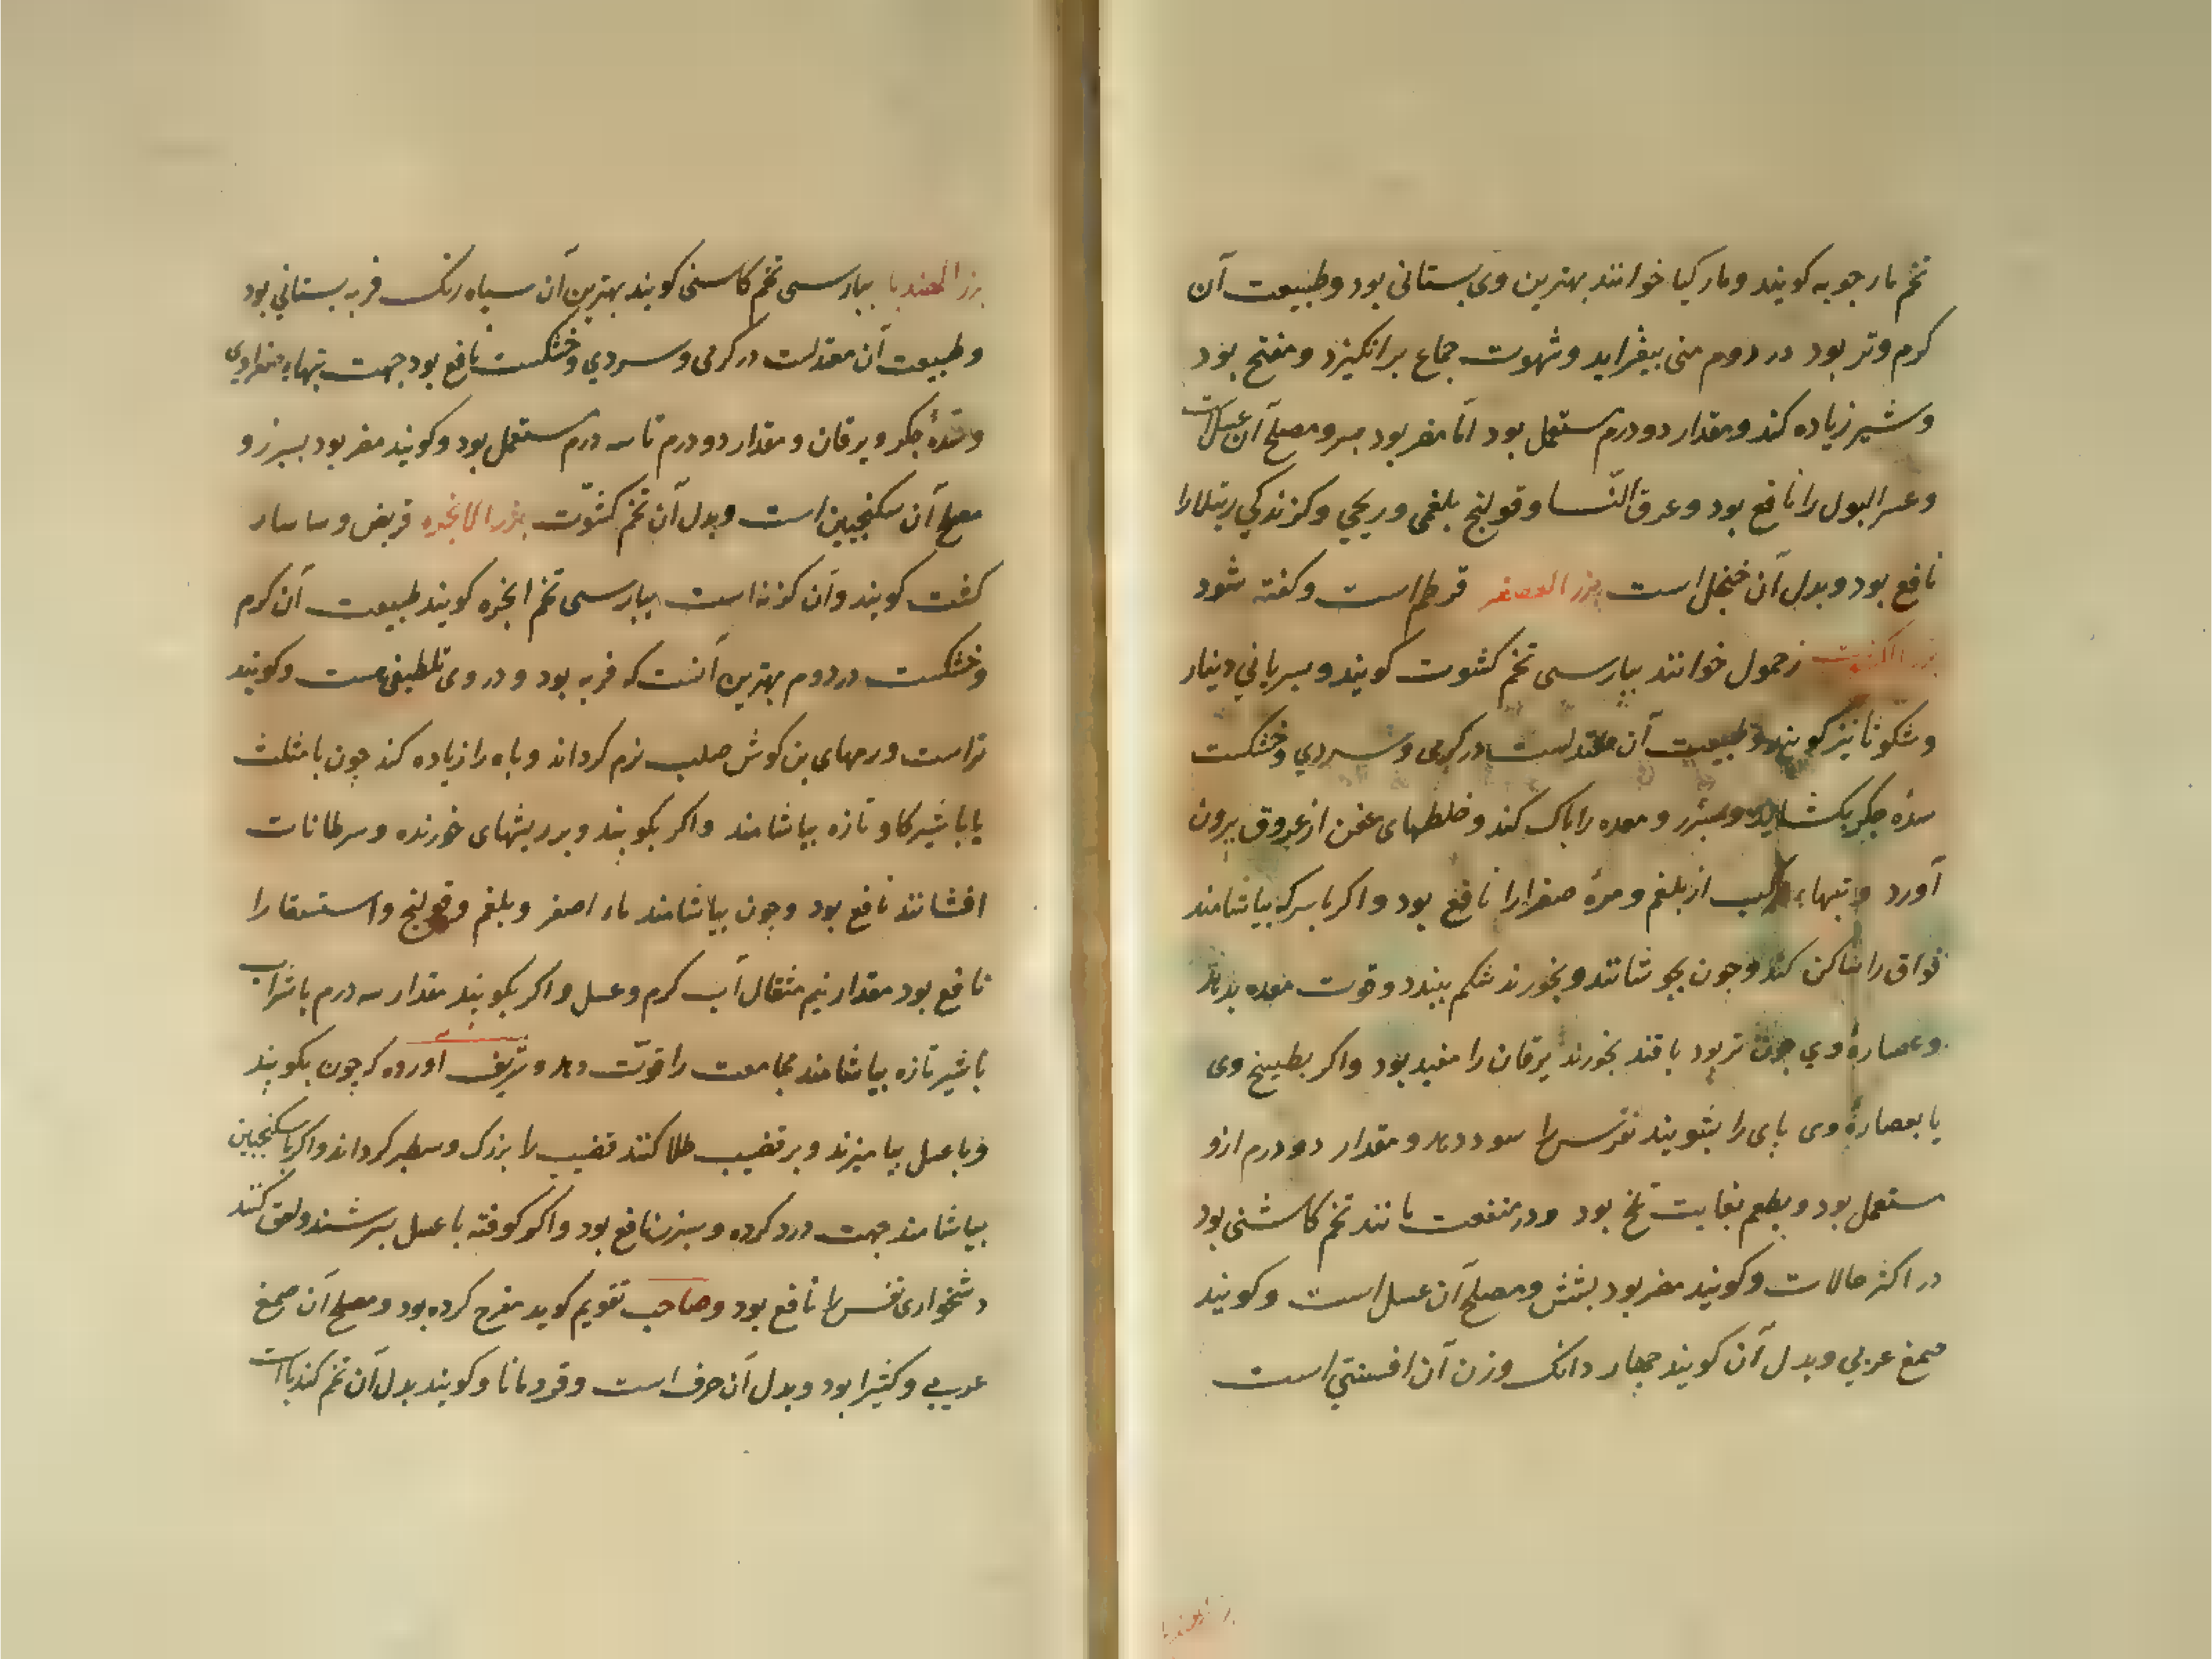 تخم مارجوبه کویند و مارکیا خوانند بهترین وی بستانی بود و طبیعت آن
کرم وتر بود در دوم منی بیفزاید و شهوت جماع برانکیزد و مفتح بود
و شیر زیاده کند و مقدار دو درم مستعمل بود امّا مضر بود بسر و مصلح آن عسل است
و عسر البول را نافع بود و عرق النّسا و قولنج بلغمی و ریحی و کزندکی رتیلا را
نافع بود و بدل آن خنجل است بزر العصفر قرطم است و کفته شود
بزر الکشوث زحمول خوانند بپارسی تخم کشوت کویند و بسریانی دینار
و شکوثا نیز کویند و طبیعت آن معتدلست در کرمی و سردی و خشکست
سدّه جکر بکشاید و سپرز و معده را پاک کند و خلطهای عفن از عروق بیرون
آورد و تبهاء مرکب از بلغم و مرّه صفرا را نافع بود و اکر با سرکه بیاشامند
فواق را ساکن کند و جون بجوشانند و بخورند شکم ببندد و قوت معده بدهد
و عصارهٔ وی جون تر بود با قند بخورند یرقان را مفید بود و اکر بطبیخ وی
یا بعصارهٔ وی پای را بشویند نقرس را سود دهد و مقدار دو درم ازو
مستعمل بود و بطعم بغایت تلخ بود و در منفعت مانند تخم کاشنی بود
در اکثر حالات و کویند مضر بود بشش و مصلح آن عسل است و کویند
صمغ عربی و بدل آن کویند جهار دانک وزن آن افسنتی است
بزر الهندبا
بزر الهندبا بپارسی تخم کاسنی کویند بهترین آن سیاه رنک فربه بستانی بود
و طبیعت آن معتدلست در کرمی و سردی و خشکست نافع بود جهت تبهاء صفراوی
و سدهٔ جکر و یرقان و مقدار دو درم تا سه درم مستعمل بود و کویند مضر بود بسپرز و
مصلح آن سکنجبین است و بدل آن تخم کشوّت بزر الانجره قریض و ساسار
کشت کویند و آن کزنه است بپارسی تخم انجره کویند طبیعت آن کرم
و خشکست در دوم بهترین آنست که فربه بود و در وی تلطیفی هست و کویند
تراست ورمهای بن کوش صلب نرم کرداند و باه را زیاده کند جون با مثلث
یا با شیر کاو تازه بیاشامند و اکر بکوبند و بر ریشهای خورنده و سرطانات
افشانند نافع بود و جون بیاشامند ماء اصفر و بلغم و قولنج و استسقا را
نافع بود مقدار نیم مثقال آب کرم و عسل و اکر بکوبند مقدار سه درم با شراب
با شیر تازه بیاشامند مجامعت را قوّت دهد و شریف آورده که جون بکوبند
و با عسل بیامیزند و بر قضیب طلا کنند قضیب را بزرک و سطبر کرداند و اکر با سکنجبین
بیاشامند جهت درد کرده و سپرز نافع بود و اکر کوفته با عسل بسرشند و لعق کنند
دشخواری نفس را نافع بود و صاحب تقویم کوید مفرح کرده بود و مصلح آن صمغ
عربی و کثیرا بود و بدل آن حرف است و قردمانا و کویند بدل آن تخم کندنا است